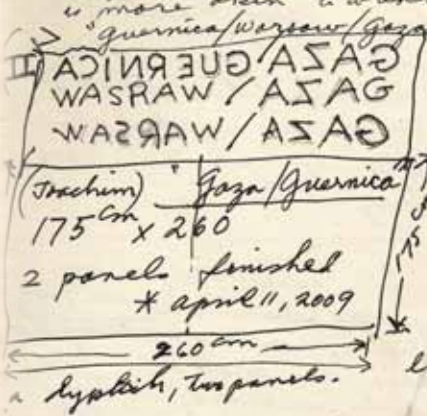 is more
"guernica/warsaw/Gaza
II
GAZA/GUERNICA
GAZA/WARSAW
GAZA/WARSAW
(Joachim) "Gaza/Guernica"
175 cm x 260
2 panels finished
* april 11, 2009
175
260 cm
a dyptich, two panels.